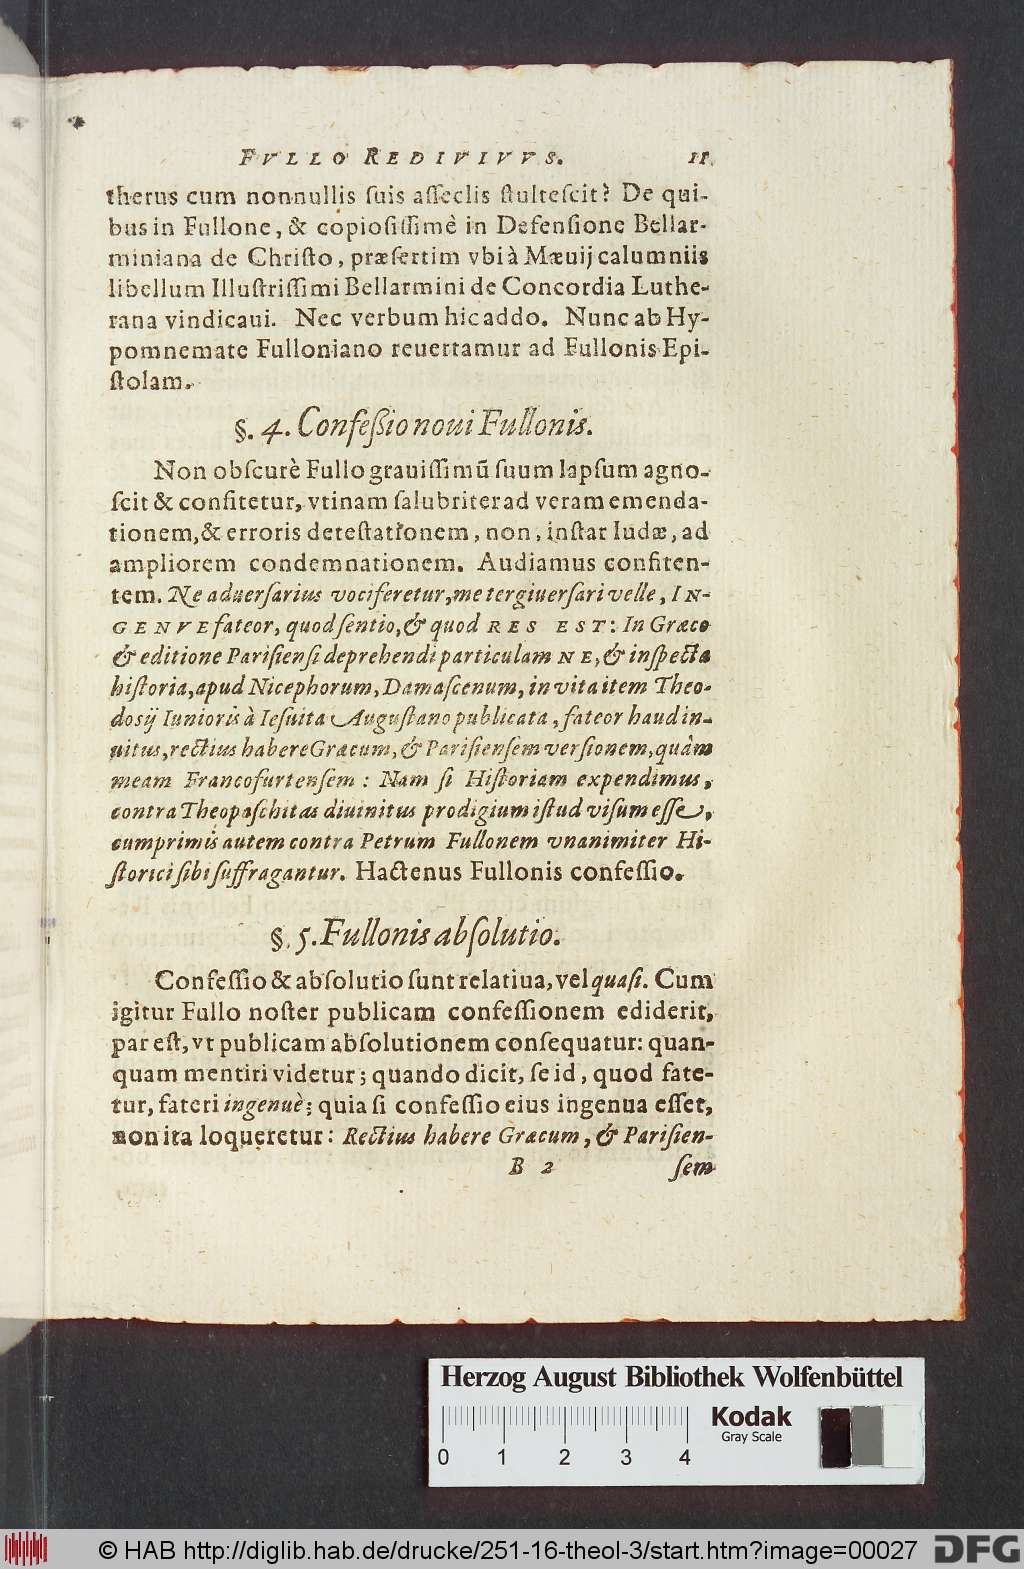 FVLLO REDIVIVVS. 11.
therus cum nonnullis suis asseclis stultescit? De qui-
bus in Fullone, & copiosissimè in Defensione Bellar-
miniana de Christo, præsertim vbi à Mæuij calumniis
libellum Illustrissimi Bellarmini de Concordia Luthe-
rana vindicaui. Nec verbum hic addo. Nunc ab Hy-
pomnemate Fulloniano reuertamur ad Fullonis Epi-
stolam.
§. 4. Confeßio noui Fullonis.
Non obscurè Fullo grauissimũ suum lapsum agno-
scit & confitetur, vtinam salubriter ad veram emenda-
tionem, & erroris detestationem, non, instar Iudæ, ad
ampliorem condemnationem. Audiamus confiten-
tem. Ne aduersarius vociferetur, me tergiuersari velle, IN-
GENVE fateor, quod sentio, & quod RES EST: In Græco
& editione Parisiensi deprehendi particulam NE, & inspecta
historia, apud Nicephorum, Damascenum, in vita item Theo-
dosij Iunioris à Iesuita Augustano publicata, fateor haud in-
uitus, rectius habere Græcum, & Parisiensem versionem, quàm
meam Francofurtensem: Nam si Historiam expendimus,
contra Theopaschitas diuinitus prodigium istud visum esse,
cumprimis autem contra Petrum Fullonem vnanimiter Hi-
storici sibi suffragantur. Hactenus Fullonis confessio.
§. 5. Fullonis absolutio.
Confessio & absolutio sunt relatiua, vel quasi. Cum
igitur Fullo noster publicam confessionem ediderit,
par est, vt publicam absolutionem consequatur: quan-
quam mentiri videtur; quando dicit, se id, quod fate-
tur, fateri ingenuè; quia si confessio eius ingenua esset,
non ita loqueretur: Rectius habere Græcum, & Parisien-
B 2 sem
Herzog August Bibliothek Wolfenbüttel
Kodak
Gray Scale
0 1 2 3 4
© HAB http://diglib.hab.de/drucke/251-16-theol-3/start.htm?image=00027
DFG